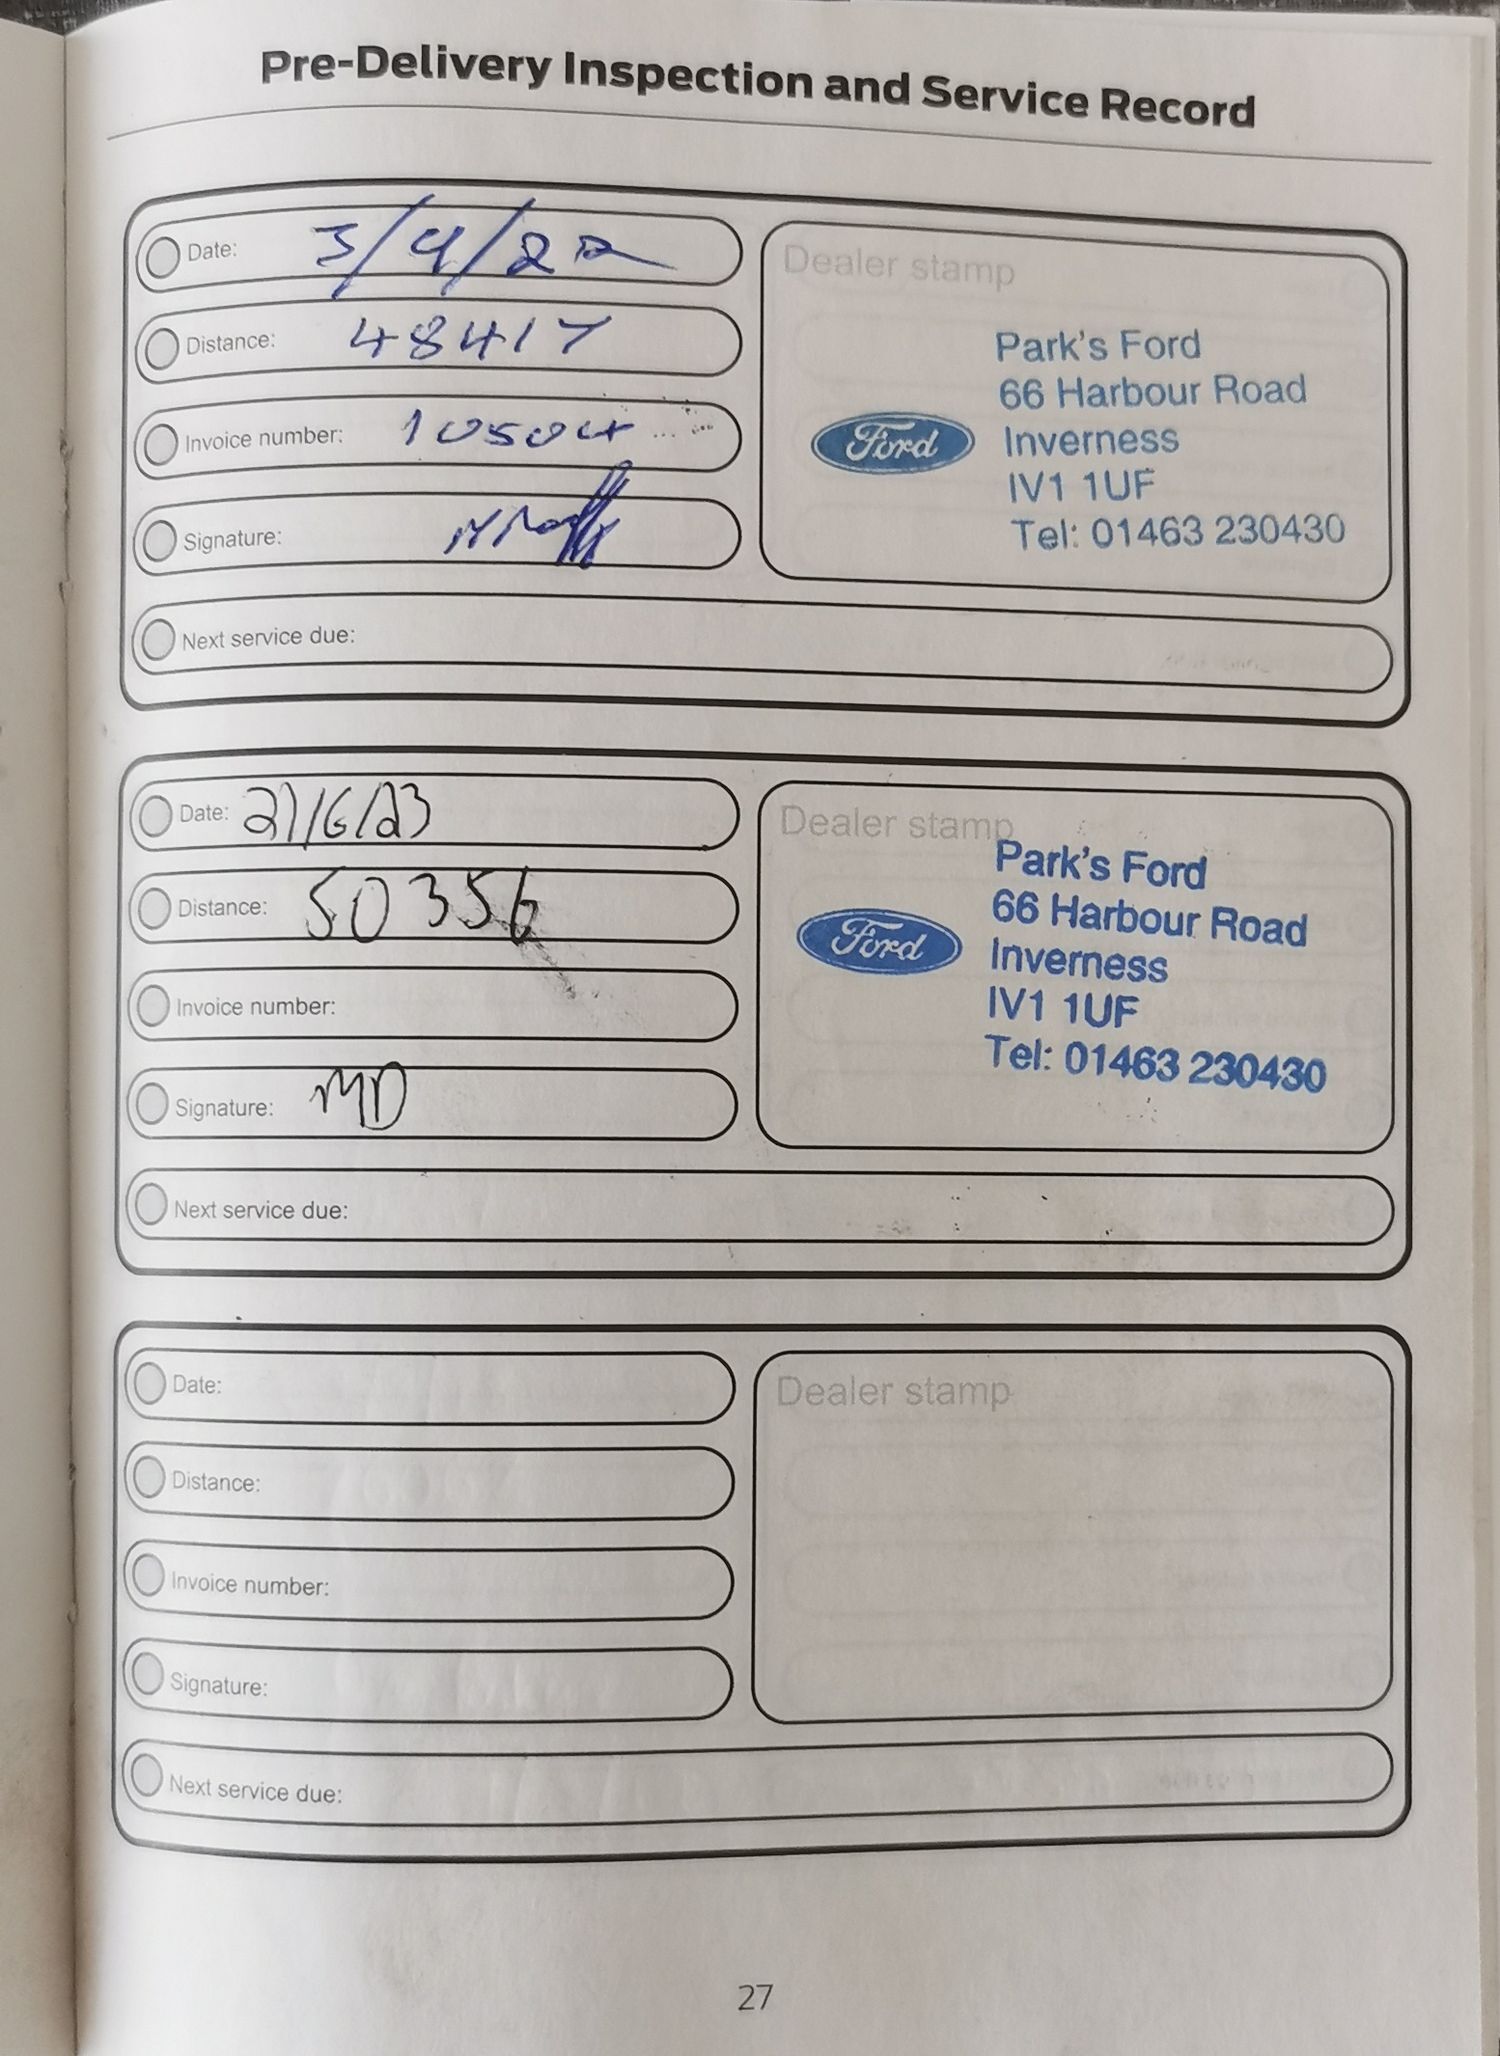 Pre-Delivery Inspection and Service Record
Date: 3/4/22
Distance: 48417
Invoice number: 10504
Signature:
Next service due:
Dealer stamp
Ford
Park's Ford
66 Harbour Road
Inverness
IV1 1UF
Tel: 01463 230430
Date: 27/6/23
Distance: 50356
Invoice number:
Signature: MD
Next service due:
Dealer stamp
Ford
Park's Ford
66 Harbour Road
Inverness
IV1 1UF
Tel: 01463 230430
Date:
Distance:
Invoice number:
Signature:
Next service due:
Dealer stamp
27